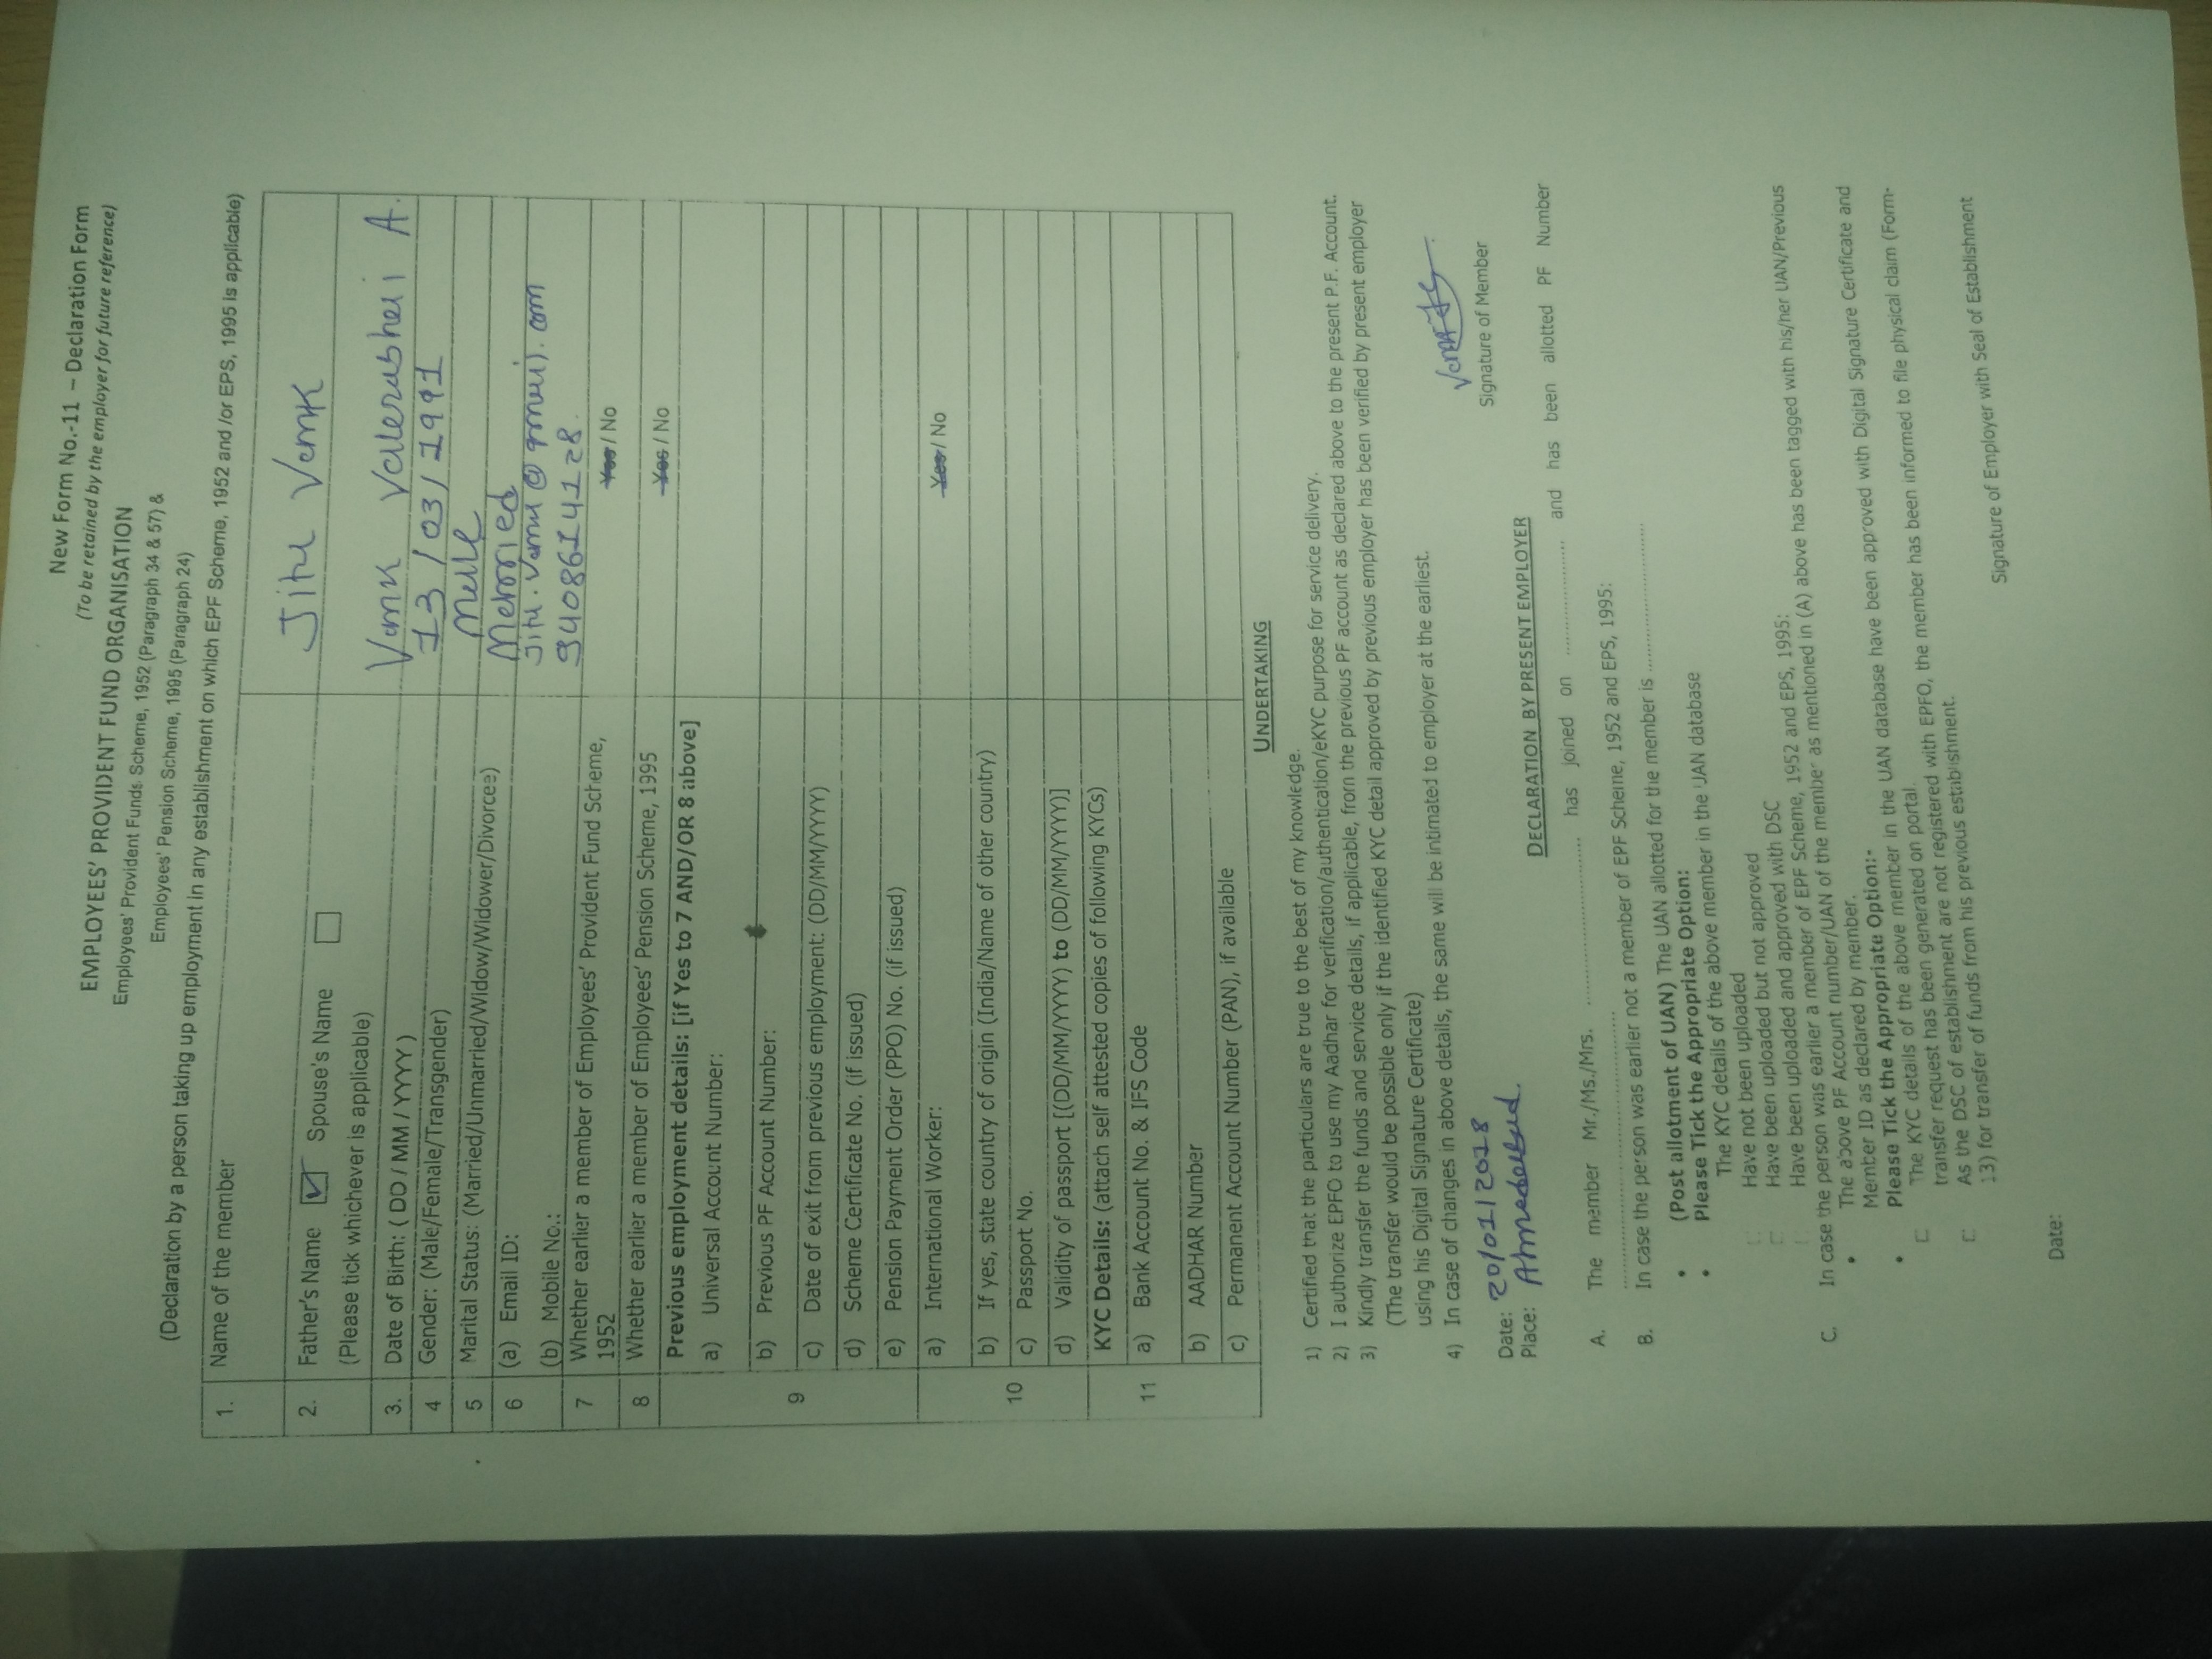 New Form No.-11 – Declaration Form
(To be retained by the employer for future reference)
EMPLOYEES' PROVIDENT FUND ORGANISATION
Employees' Provident Funds Scheme, 1952 (Paragraph 34 & 57) &
Employees' Pension Scheme, 1995 (Paragraph 24)
(Declaration by a person taking up employment in any establishment on which EPF Scheme, 1952 and /or EPS, 1995 is applicable)
1. Name of the member Jitu Vank
2. Father's Name Spouse's Name
(Please tick whichever is applicable) Vank A.
3. Date of Birth: ( DD / MM / YYYY ) 13 / 03 / 1991
4 Gender: (Male/Female/Transgender)
5 Marital Status: (Married/Unmarried/Widow/Widower/Divorcee)
6 (a) Email ID:
(b) Mobile No.: 9408614128.
7 Whether earlier a member of Employees' Provident Fund Scheme, Yes / No
1952
8 Whether earlier a member of Employees' Pension Scheme, 1995 Yes / No
Previous employment details: [if Yes to 7 AND/OR 8 above]
a) Universal Account Number:
9 b) Previous PF Account Number:
c) Date of exit from previous employment: (DD/MM/YYYY)
d) Scheme Certificate No. (if issued)
e) Pension Payment Order (PPO) No. (if issued)
a) International Worker: Yes / No
10 b) If yes, state country of origin (India/Name of other country)
c) Passport No.
d) Validity of passport [(DD/MM/YYYY) to (DD/MM/YYYY)]
KYC Details: (attach self attested copies of following KYCs)
11 a) Bank Account No. & IFS Code
b) AADHAR Number
c) Permanent Account Number (PAN), if available
UNDERTAKING
1) Certified that the particulars are true to the best of my knowledge.
2) I authorize EPFO to use my Aadhar for verification/authentication/eKYC purpose for service delivery.
3) Kindly transfer the funds and service details, if applicable, from the previous PF account as declared above to the present P.F. Account.
(The transfer would be possible only if the identified KYC detail approved by previous employer has been verified by present employer
using his Digital Signature Certificate)
4) In case of changes in above details, the same will be intimated to employer at the earliest.
Date: 20/01/2018
Place:
Signature of Member
DECLARATION BY PRESENT EMPLOYER
A. The member Mr./Ms./Mrs. ........................ has joined on ................ and has been allotted PF Number
........................
B. In case the person was earlier not a member of EPF Scheme, 1952 and EPS, 1995:
• (Post allotment of UAN) The UAN allotted for the member is ........................
• Please Tick the Appropriate Option:
The KYC details of the above member in the UAN database
Have not been uploaded
Have been uploaded but not approved
Have been uploaded and approved with DSC
C. In case the person was earlier a member of EPF Scheme, 1952 and EPS, 1995:
• The above PF Account number/UAN of the member as mentioned in (A) above has been tagged with his/her UAN/Previous
Member ID as declared by member.
• Please Tick the Appropriate Option:-
The KYC details of the above member in the UAN database have been approved with Digital Signature Certificate and
transfer request has been generated on portal.
As the DSC of establishment are not registered with EPFO, the member has been informed to file physical claim (Form-
13) for transfer of funds from his previous establishment.
Date: Signature of Employer with Seal of Establishment